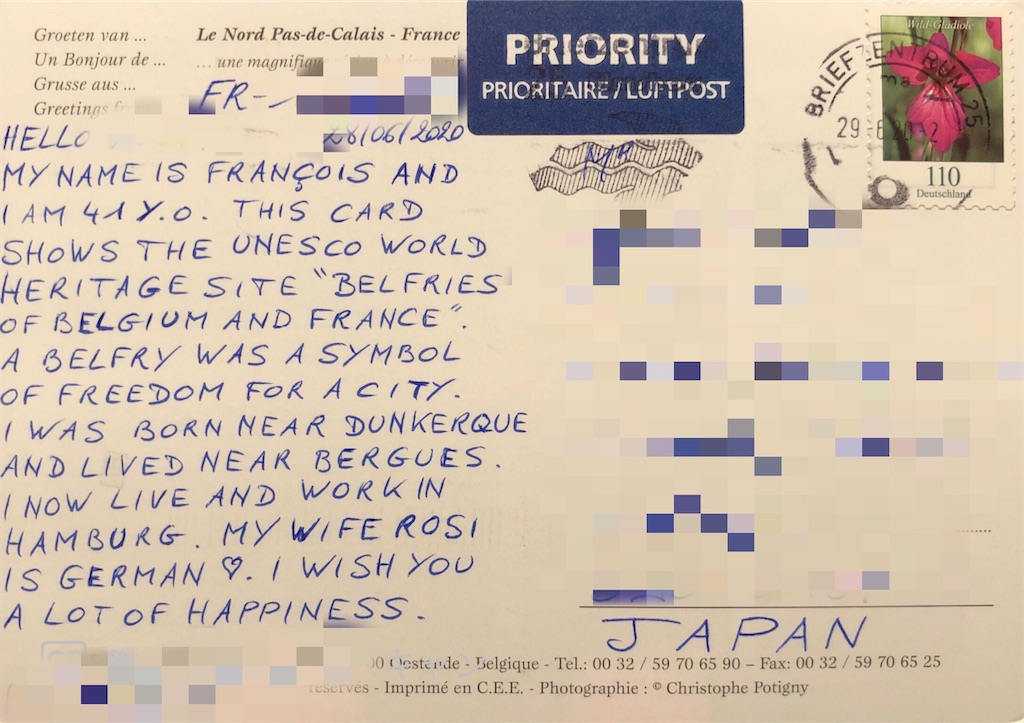 Groeten van ...
Le Nord Pas-de-Calais - France
Un Bonjour de ...
... une magnifique
Grusse aus ...
Greetings
FR-
PRIORITY
PRIORITAIRE / LUFTPOST
Wild-Gladiole
BRIEFZENTRUM 25
110
Deutschland
HELLO
28/06/2020
MY NAME IS FRANÇOIS AND
I AM 41 Y.O. THIS CARD
SHOWS THE UNESCO WORLD
HERITAGE SITE "BELFRIES
OF BELGIUM AND FRANCE".
A BELFRY WAS A SYMBOL
OF FREEDOM FOR A CITY.
I WAS BORN NEAR DUNKERQUE
AND LIVED NEAR BERGUES.
I NOW LIVE AND WORK IN
HAMBURG. MY WIFE ROSI
IS GERMAN ♡. I WISH YOU
A LOT OF HAPPINESS.
JAPAN
Oostende - Belgique - Tel.: 00 32 / 59 70 65 90 – Fax: 00 32 / 59 70 65 25
réservés - Imprimé en C.E.E. - Photographie : © Christophe Potigny